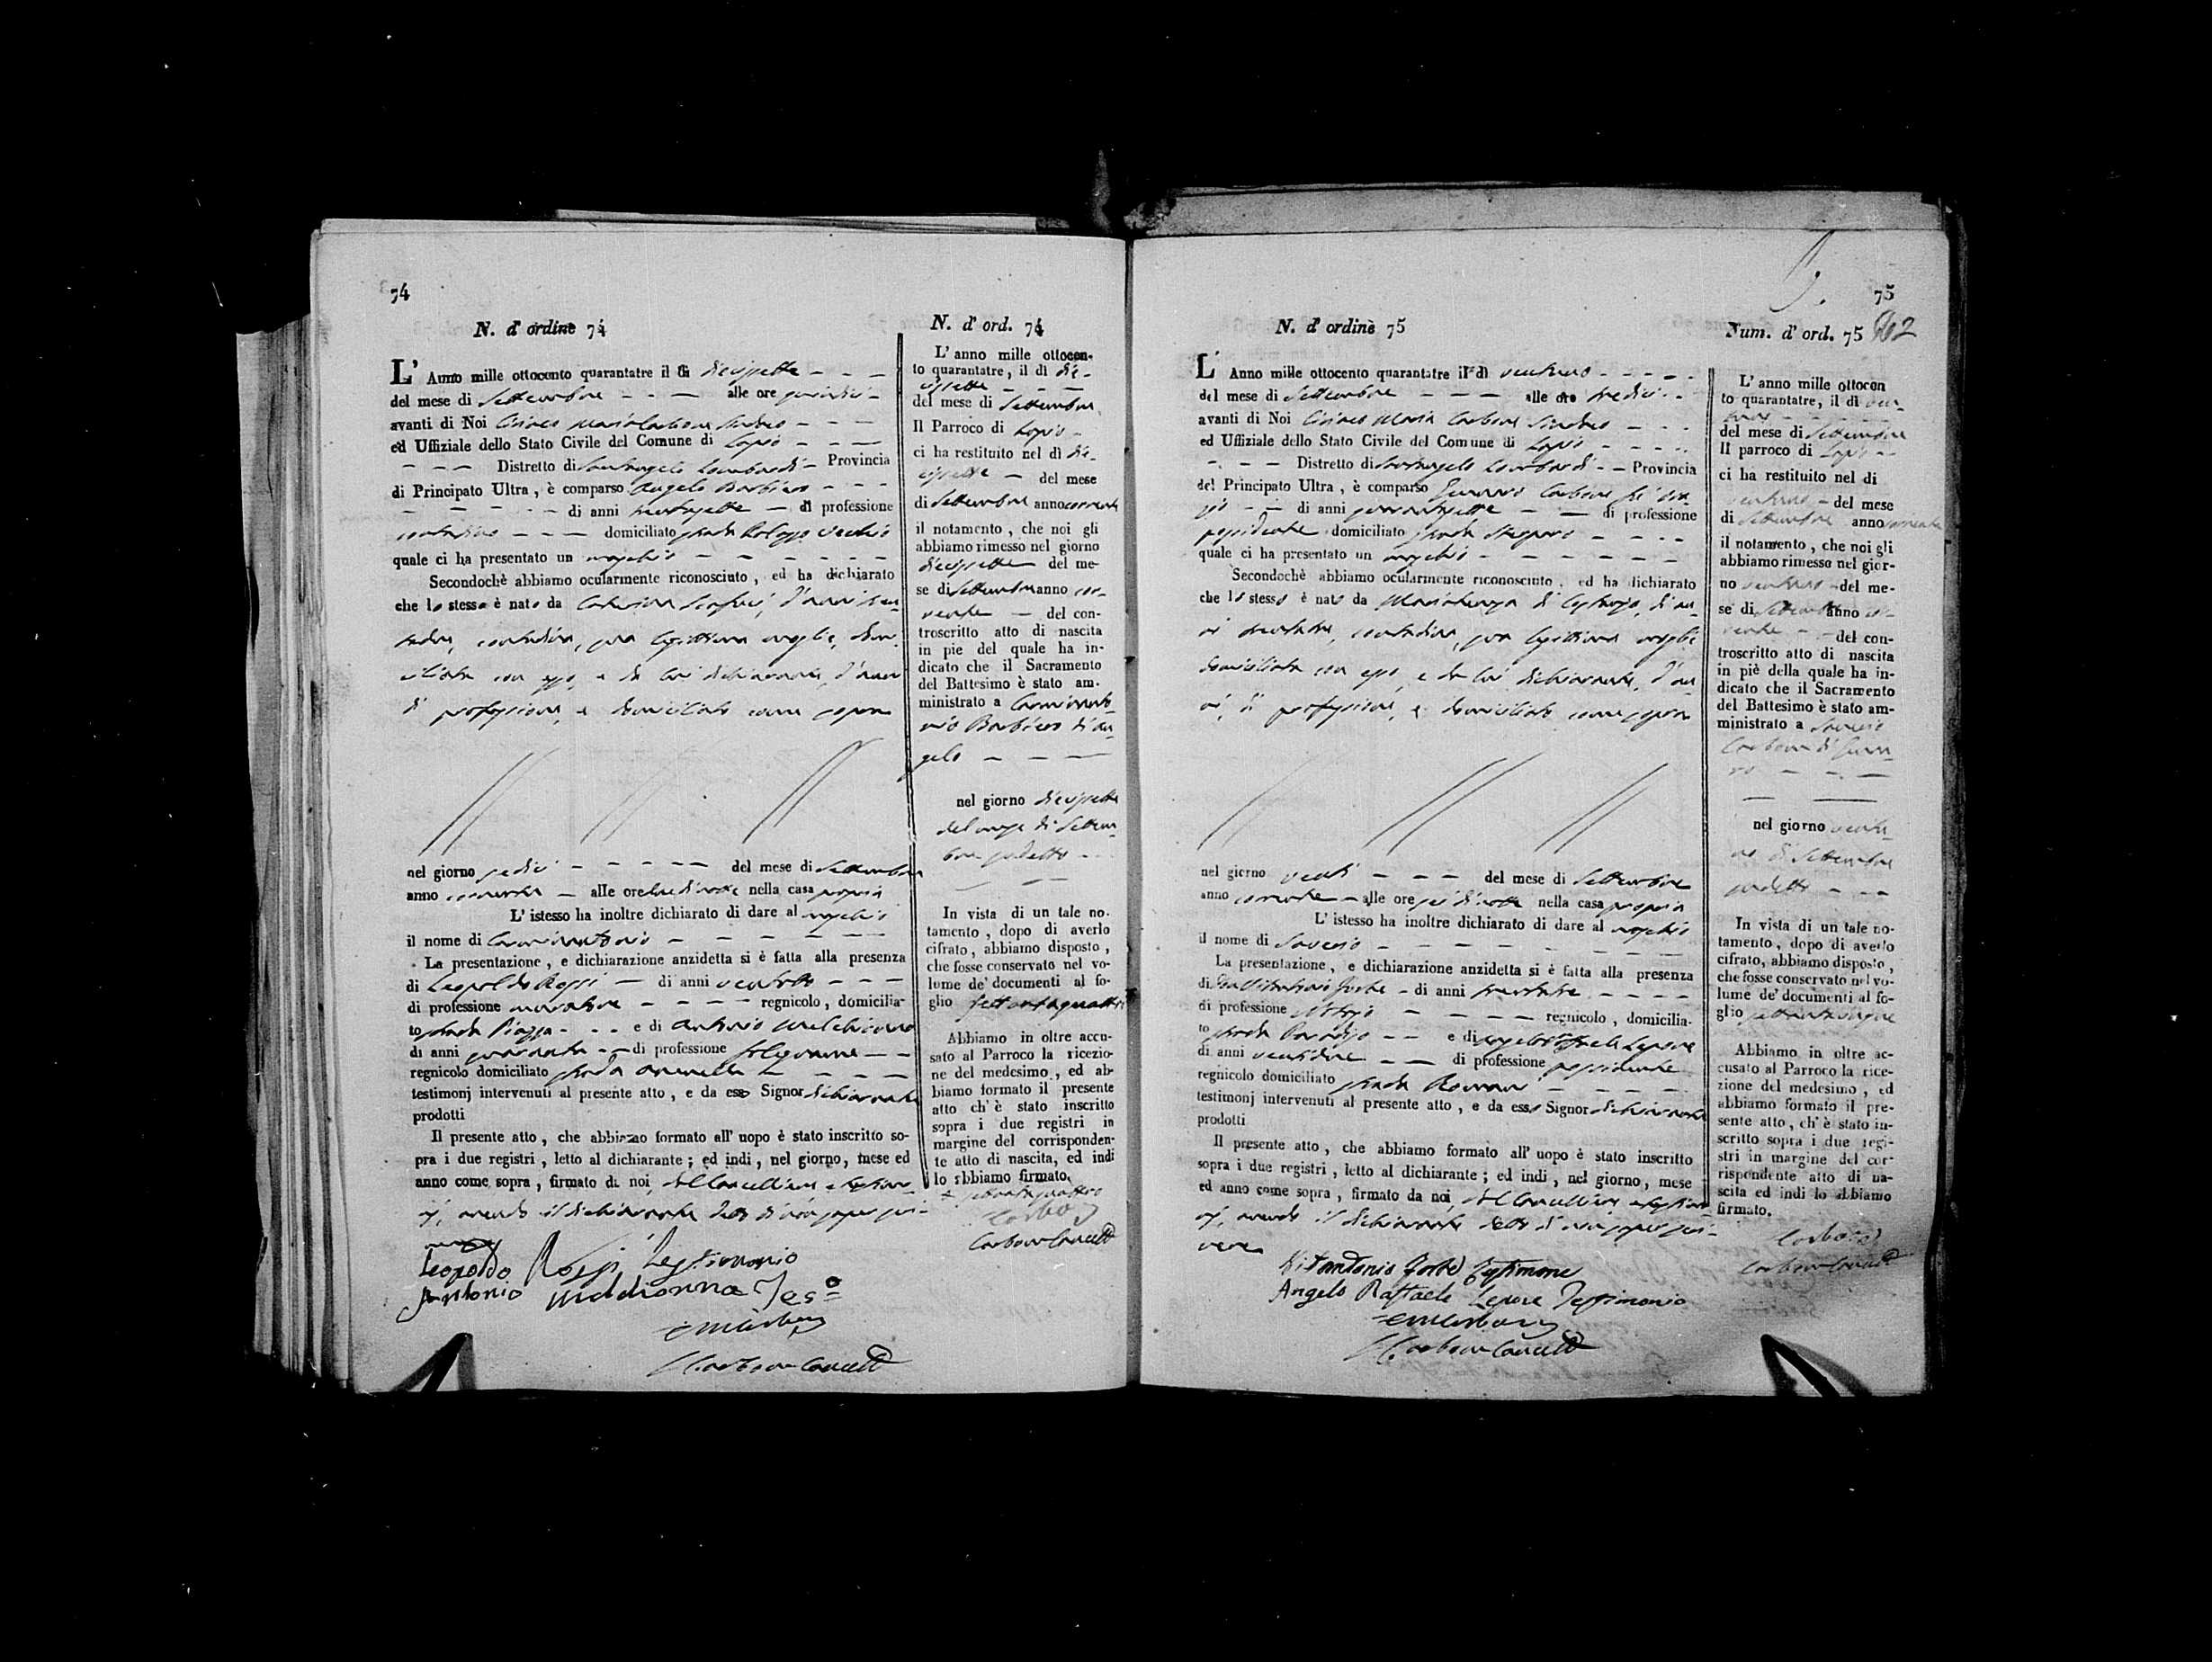 74
N. d' ordine 74
L' Anno mille ottocento quarantatre il dì diecisette
del mese di Settembre alle ore quindici
avanti di Noi Ciriaco Maria Carbone Sindaco
ed Uffiziale dello Stato Civile del Comune di Lapio
Distretto di Santangelo Lombardi Provincia
di Principato Ultra, è comparso Angelo Barbieri
di anni trentasette di professione
contadino domiciliato strada Palazzo Vecchio
quale ci ha presentato un maschio
Secondochè abbiamo ocularmente riconosciuto, ed ha dichiarato
che lo stesso è nato da Caterina d'anni
contadina, sua legittima moglie, domi-
ciliata con esso, e da lui dichiarante, d'anni
di professione, e domiciliato come sopra
nel giorno sedici del mese di Settembre
anno corrente alle ore due di notte nella casa propria
L' istesso ha inoltre dichiarato di dare al maschio
il nome di Carminantonio
La presentazione, e dichiarazione anzidetta si è fatta alla presenza
di Leopoldo Rossi di anni ventotto
di professione muratore regnicolo, domicilia-
to strada Piazza e di Antonio
di anni quaranta di professione falegname
regnicolo domiciliato strada
testimonj intervenuti al presente atto, e da esso Signor dichiarante
prodotti
Il presente atto, che abbiamo formato all' uopo è stato inscritto so-
pra i due registri, letto al dichiarante; ed indi, nel giorno, mese ed
anno come sopra, firmato da noi, dal Cancelliere e testimo-
nj, avendo il dichiarante detto di non saper scri-
vere
Leopoldo Rossi Testimonio
Antonio Tes.o
Carbone Cancell
N. d' ord. 74
L' anno mille ottocen-
to quarantatre, il dì die-
cisette
del mese di Settembre
Il Parroco di Lapio
ci ha restituito nel dì die-
cisette del mese
di Settembre anno corrente
il notamento, che noi gli
abbiamo rimesso nel giorno
diecisette del me-
se di Settembre anno cor-
rente del con-
troscritto atto di nascita
in pie del quale ha in-
dicato che il Sacramento
del Battesimo è stato am-
ministrato a Carminanto-
nio Barbieri di An-
gelo
nel giorno diecisette
del mese di Settem-
bre sudetto
In vista di un tale no-
tamento, dopo di averlo
cifrato, abbiamo disposto,
che fosse conservato nel vo-
lume de' documenti al fo-
glio settantaquattro
Abbiamo in oltre accu-
sato al Parroco la ricezio-
ne del medesimo, ed ab-
biamo formato il presente
atto ch' è stato inscritto
sopra i due registri in
margine del corrisponden-
te atto di nascita, ed indi
lo abbiamo firmato.
settantaquattro
Carbone
Carbone Cancell
75
N. d' ordine 75
L' Anno mille ottocento quarantatre il dì ventuno
del mese di Settembre alle ore tredici
avanti di Noi Ciriaco Maria Carbone Sindaco
ed Uffiziale dello Stato Civile del Comune di Lapio
Distretto di Santangelo Lombardi Provincia
del Principato Ultra, è comparso Gennaro Carbone
di anni quarantasette di professione
possidente domiciliato strada
quale ci ha presentato un maschio
Secondochè abbiamo ocularmente riconosciuto, ed ha dichiarato
che lo stesso è nato da Mariateresa di d'an-
ni trentatre, contadina, sua legittima moglie
domiciliata con esso, e da lui dichiarante, d'an-
ni, di professione, e domiciliato come sopra
nel giorno venti del mese di Settembre
anno corrente alle ore sei di notte nella casa propria
L' istesso ha inoltre dichiarato di dare al maschio
il nome di Saverio
La presentazione, e dichiarazione anzidetta si è fatta alla presenza
di Vitantonio Forte di anni trentatre
di professione regnicolo, domicilia-
to strada e di Angelo Raffaele Lepore
di anni ventidue di professione possidente
regnicolo domiciliato strada
testimonj intervenuti al presente atto, e da esso Signor dichiarante
prodotti
Il presente atto, che abbiamo formato all' uopo è stato inscritto
sopra i due registri, letto al dichiarante; ed indi, nel giorno, mese
ed anno come sopra, firmato da noi, dal Cancelliere e testimo-
nj, avendo il dichiarante detto di non saper scri-
vere
Vitantonio Forte Testimone
Angelo Raffaele Lepore Testimonio
Carbone Cancell
Num. d' ord. 75
L' anno mille ottocen
to quarantatre, il dì ven-
tuno
del mese di Settembre
Il parroco di Lapio
ci ha restituito nel di
ventuno del mese
di Settembre anno corrente
il notamento, che noi gli
abbiamo rimesso nel gior-
no ventuno del me-
se di Settembre anno cor-
rente del con-
troscritto atto di nascita
in piè della quale ha in-
dicato che il Sacramento
del Battesimo è stato am-
ministrato a Saverio
Carbone di Genna-
ro
nel giorno ventu-
no di Settembre
sudetto
In vista di un tale no-
tamento, dopo di averlo
cifrato, abbiamo disposto,
che fosse conservato nel vo-
lume de' documenti al fo-
glio settantacinque
Abbiamo in oltre ac-
cusato al Parroco la rice-
zione del medesimo, ed
abbiamo formato il pre-
sente atto, ch' è stato in-
scritto sopra i due regi-
stri in margine del cor-
rispondente atto di na-
scita ed indi lo abbiamo
firmato.
Carbone
Carbone Cancell